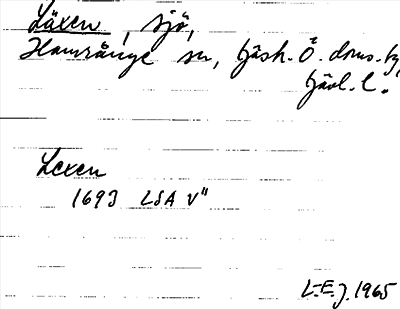 Läxen, sjö,
Hamrånge sn, Gästr. Ö. doms.,
Gävl. l.
Lexen
1693 LSA V"
L.E.J. 1965